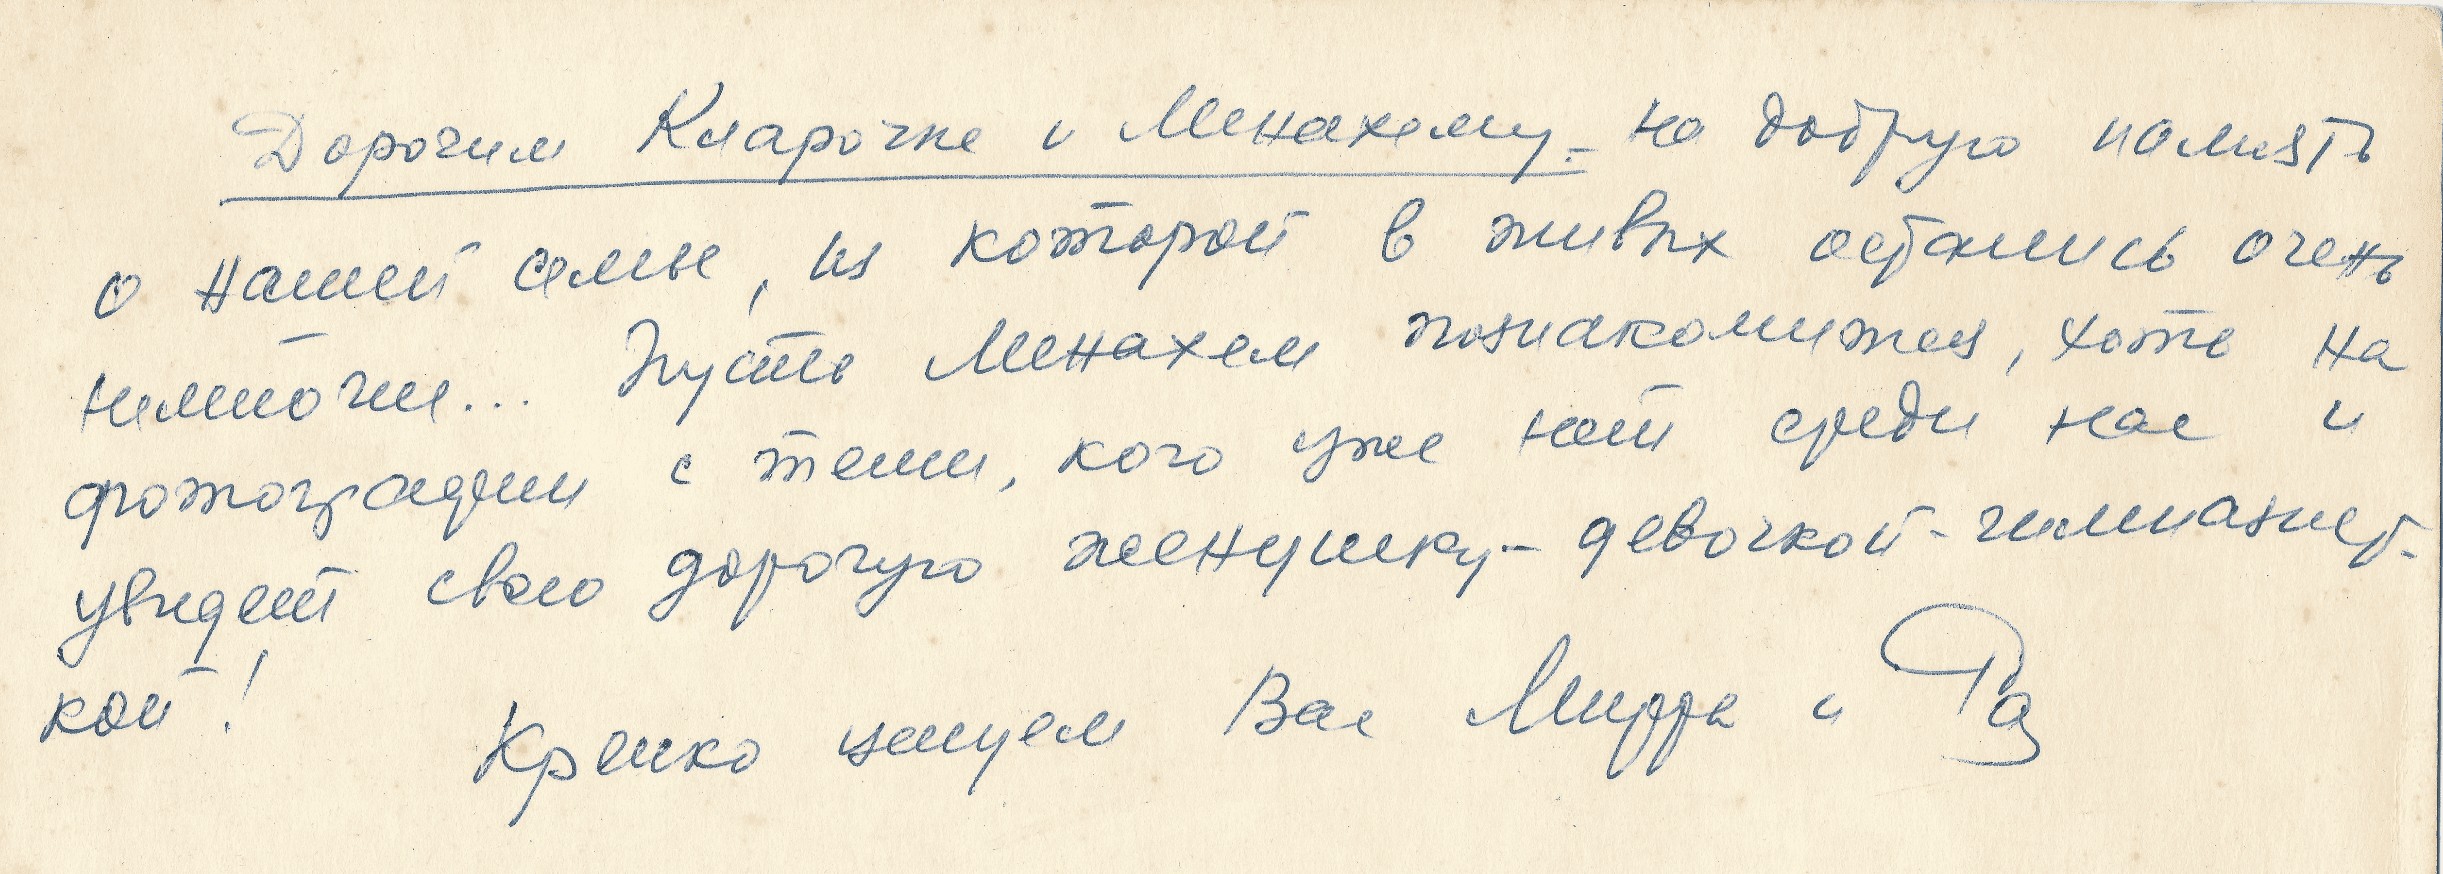 Дорогим Кларочке и Менахему – на добрую память
о нашей семье, из которой в живых остались очень
немногие... Пусть Менахем познакомится, хоть на
фотографии с теми, кого уже нет среди нас и
увидет свою дорогую женушку – девочкой-гимназист-
кой!
Крепко целуем Вас Мирра и